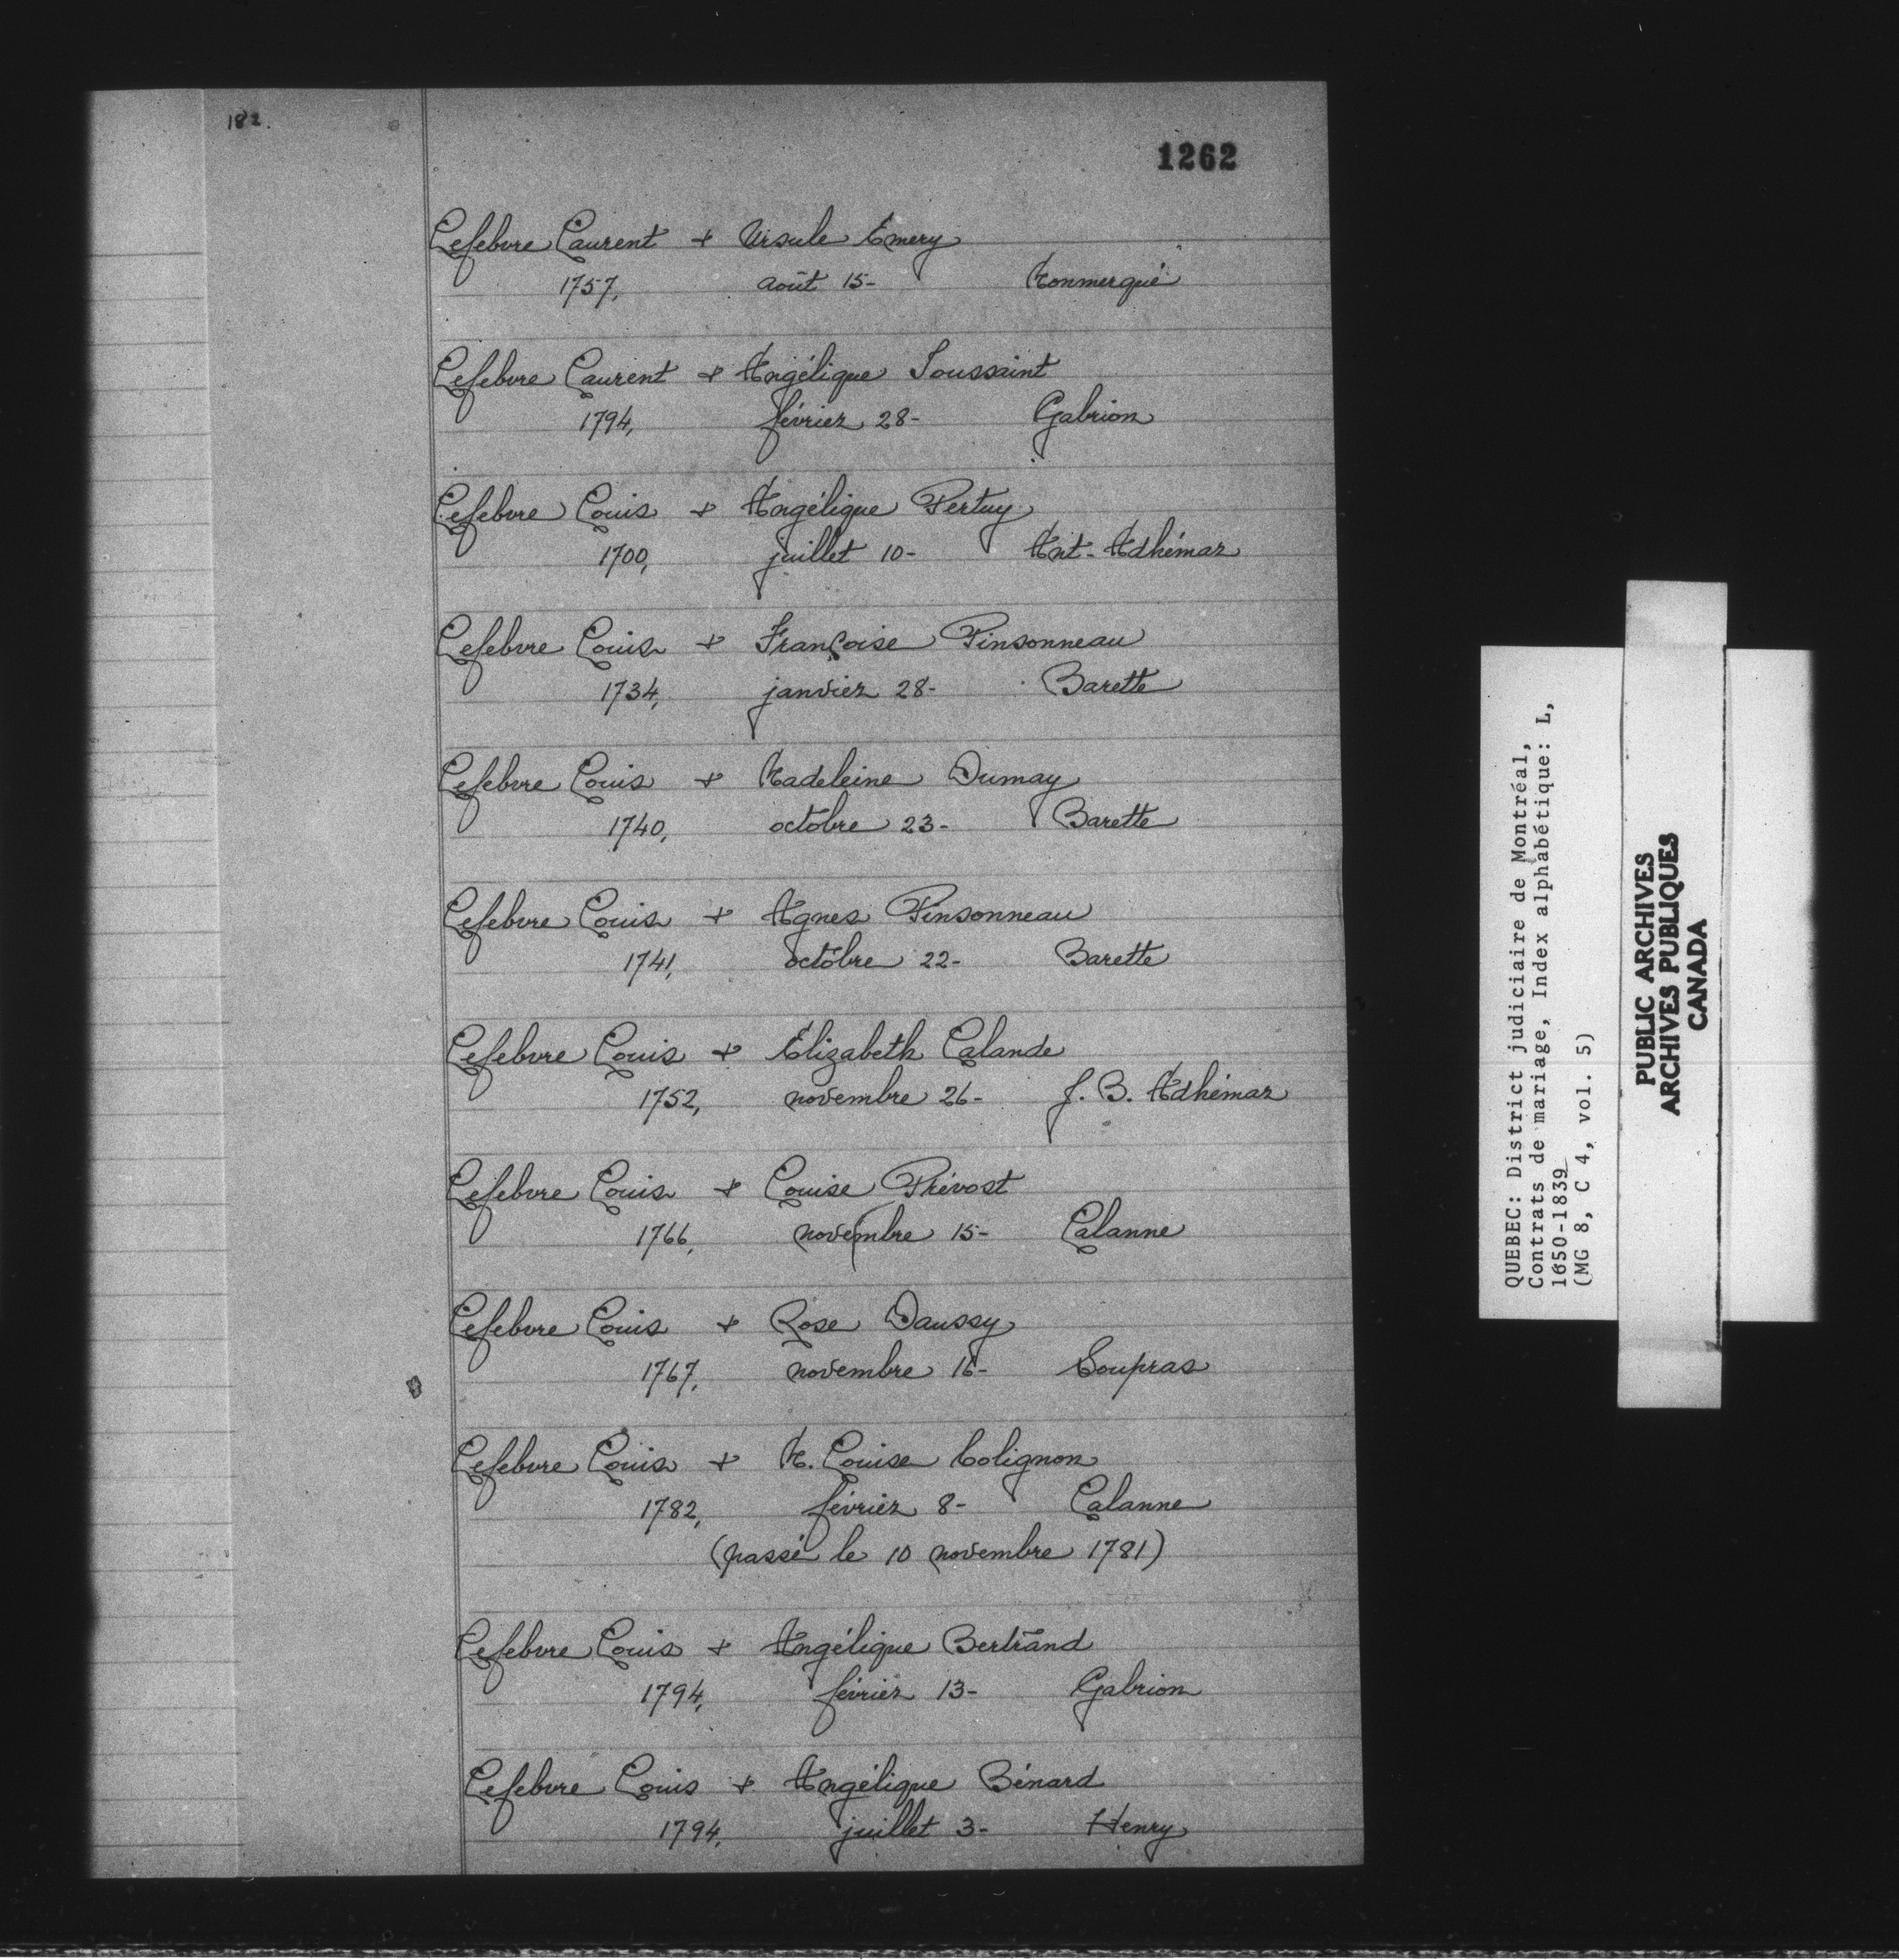 182.
1262
Lefebvre Laurent + Ursule Emery
1757, août 15- Monmerqué
Lefebvre Laurent + Angélique Toussaint
1794, février 28- Gabrion
Lefebvre Louis + Angélique Pertuy
1700, juillet 10- Ant. Adhémar
Lefebvre Louis + Françoise Pinsonneau
1734, janvier 28- Barette
Lefebvre Louis + Madeleine Dumay
1740, octobre 23- Barette
Lefebvre Louis + Agnes Pinsonneau
1741, octobre 22- Barette
Lefebvre Louis + Elizabeth Lalande
1752, novembre 26- J. B. Adhémar
Lefebvre Louis + Louise Prévost
1766, novembre 15- Lalanne
Lefebvre Louis + Rose Daussy
1767, novembre 16- Soupras
Lefebvre Louis + M. Louise Colignon
1782, février 8- Lalanne
(passé le 10 novembre 1781)
Lefebvre Louis + Angélique Bertrand
1794, février 13- Gabrion
Lefebvre Louis + Angélique Bénard
1794, juillet 3- Henry
QUEBEC: District judiciaire de Montréal,
Contrats de mariage, Index alphabétique: L,
1650-1839
(MG 8, C 4, vol. 5)
PUBLIC ARCHIVES
ARCHIVES PUBLIQUES
CANADA